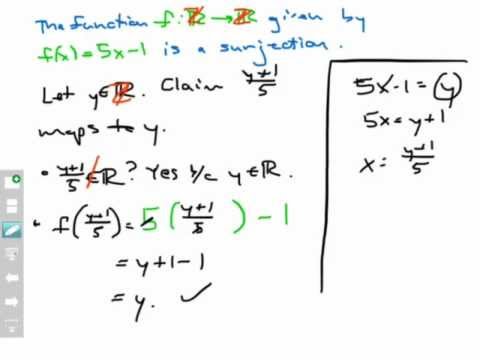 The function f: ℤ → ℤ given by
f(x) = 5x-1 is a surjection.
Let y ∈ ℤ. Claim (y+1)/5
maps to y.
• (y+1)/5 ∉ ℝ? Yes b/c y ∈ ℝ.
• f((y+1)/5) = 5((y+1)/5) - 1
= y+1-1
= y. ✓
5x-1 = y
5x = y+1
x = (y+1)/5